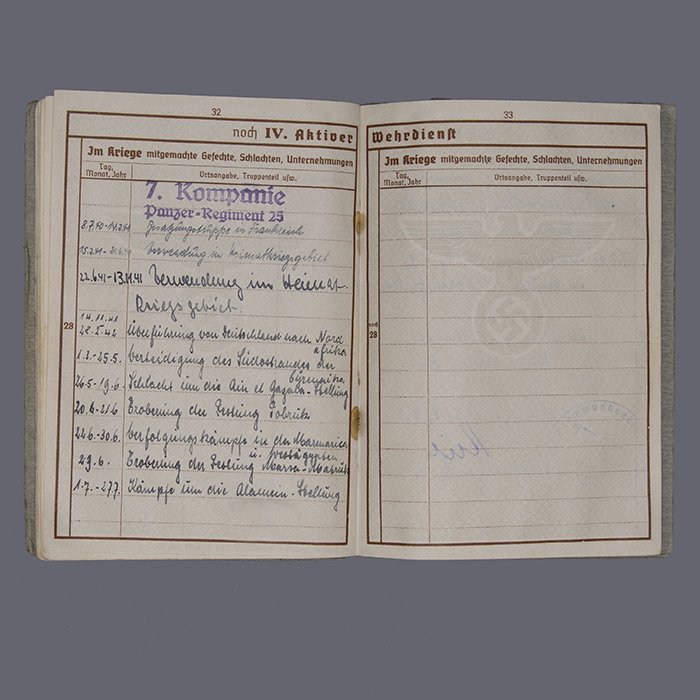 32
noch IV. Aktiver
Im Kriege mitgemachte Gefechte, Schlachten, Unternehmungen
Tag, Monat, Jahr
Ortsangabe, Truppenteil usw.
7. Kompanie
Panzer-Regiment 25
Besatzungstruppe in Frankreich
Verwendung im Heimatkriegsgebiet
22.6.41-13.11.41 Verwendung im Heimat-
kriegsgebiet.
14.11.41
28.2.42 Überführung von Deutschland nach Nord
afrika
1.3.-25.5. Verteidigung des Südostrandes der
Cyrenaika
26.5-19.6. Schlacht um die Ain el Gazala-Stellung
20.6-21.6 Eroberung der Festung Tobruk
22.6.-30.6. Verfolgungskämpfe in der Marmarica
u. Westägypten
29.6. Eroberung der Festung Marsa-Matruk
1.7.-27.7. Kämpfe um die Alamein-Stellung
28
33
Wehrdienst
Im Kriege mitgemachte Gefechte, Schlachten, Unternehmungen
Tag, Monat, Jahr
Ortsangabe, Truppenteil usw.
noch
28